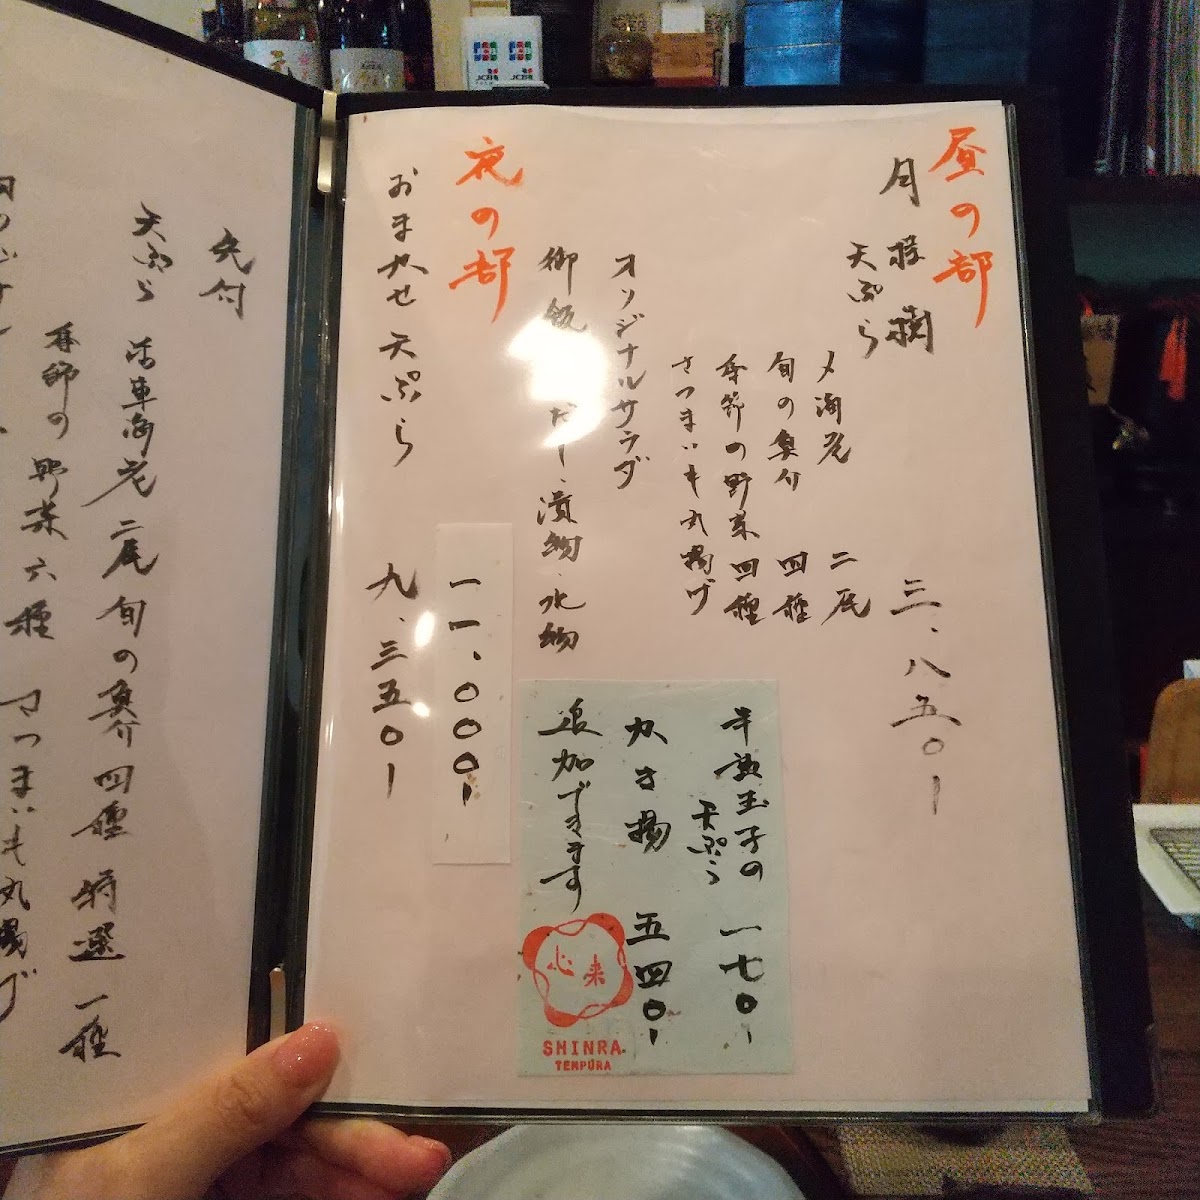 昼の部
月桂樹 三、八五〇ー
天ぷら
才海老 二尾
旬の魚介 四種
季節の野菜 四種
さつまいも丸揚げ
オリジナルサラダ
御飯
だし、漬物、水物
半熟玉子の
天ぷら 一七〇ー
かき揚 五四〇ー
追加できます
心来
SHINRA.
TEMPURA
夜の部
一一、〇〇〇ー
おまかせ天ぷら 九、三五〇ー
先付
天ぷら 活車海老二尾 旬の魚介四種 特選一種
季節の野菜六種 さつまいも丸揚げ
JCB